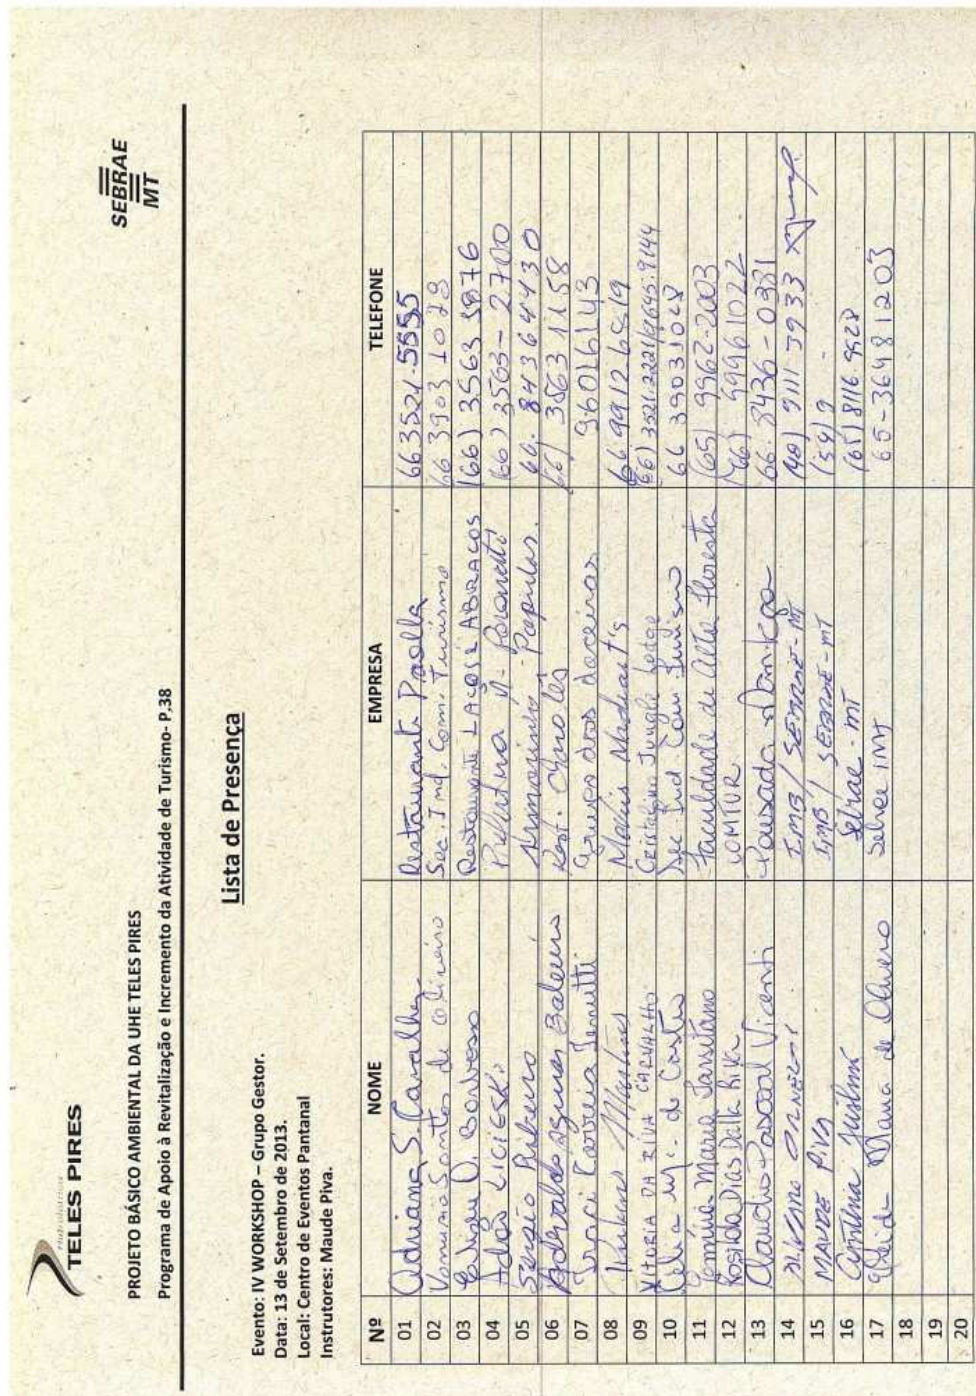 Hidrelétrica
TELES PIRES
SEBRAE
MT
PROJETO BÁSICO AMBIENTAL DA UHE TELES PIRES
Programa de Apoio à Revitalização e Incremento da Atividade de Turismo- P.38
Lista de Presença
Evento: IV WORKSHOP – Grupo Gestor.
Data: 13 de Setembro de 2013.
Local: Centro de Eventos Pantanal
Instrutores: Maude Piva.
Nº NOME EMPRESA TELEFONE
01 Adriana S. Carvalho Restaurante Paella 66 3521-5555
02 Santos de Oliveira Sec. Ind. Com. Turismo 66 3903 1028
03 D. Barboso Restaurante LAÇOS E ABRAÇOS (66) 3563 3876
04 Adão (66) 3563-2700
05 Sergio Ribeiro Armarinho Popular. 66. 84364430
06 Aguiar Baleeiro Rest. (66) 3563 1158
07 Correia Grupo dos doceiros 96016143
08 Martins 66. 9912 6819
09 VITORIA DA RIVA CARVALHO Cristalino Jungle Lodge (66) 3521.2221/9645.9144
10 Celia M. de Castro Sec Ind. Com Turismo 66 39031028
11 Maria Tarsitano Faculdade de Alta Floresta (65) 9962-2003
12 Rosilda Dias Dalla Riva COMTUR (66) 99961022
13 Claudio Pascoal Vicenti Pousada 66. 8436-0331
14 IMB / SEBRAE-MT (48) 9111 3933
15 MAUDE PIVA IMB / SEBRAE-MT (54) 9
16 Cynthia Justino Sebrae-MT (65) 8116.9528
17 Maria de Oliveira Sebrae MT 65-36481203
18
19
20